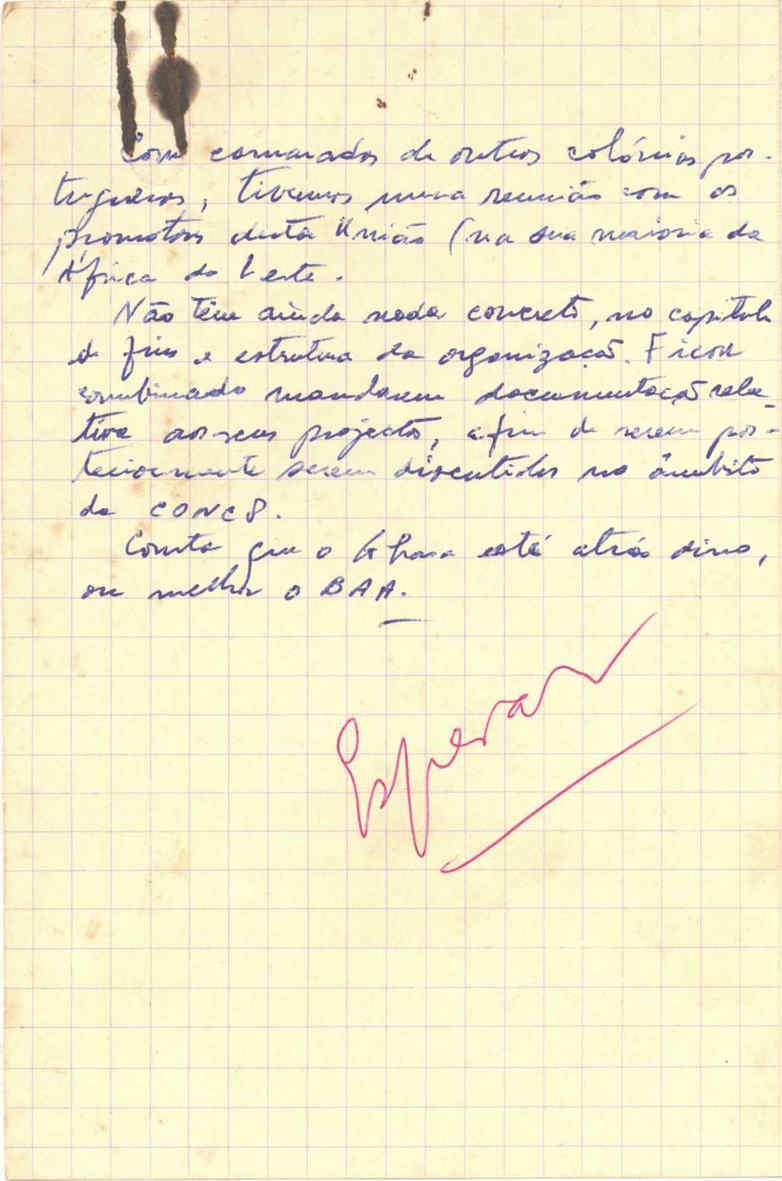 Com camaradas de outras colónias por-
tuguesas, tivemos uma reunião com os
promotores desta União (na sua maioria da
África do Leste.
Não têm ainda nada concreto, no capítulo
de fins e estrutura da organização. Ficou
combinado mandarem documentação rela-
tiva aos seus projectos, a fim de serem pos-
teriormente serem discutidos no âmbito
da CONCP.
Consta que o Ghana está atrás disso,
ou melhor o BAA.
Esperar